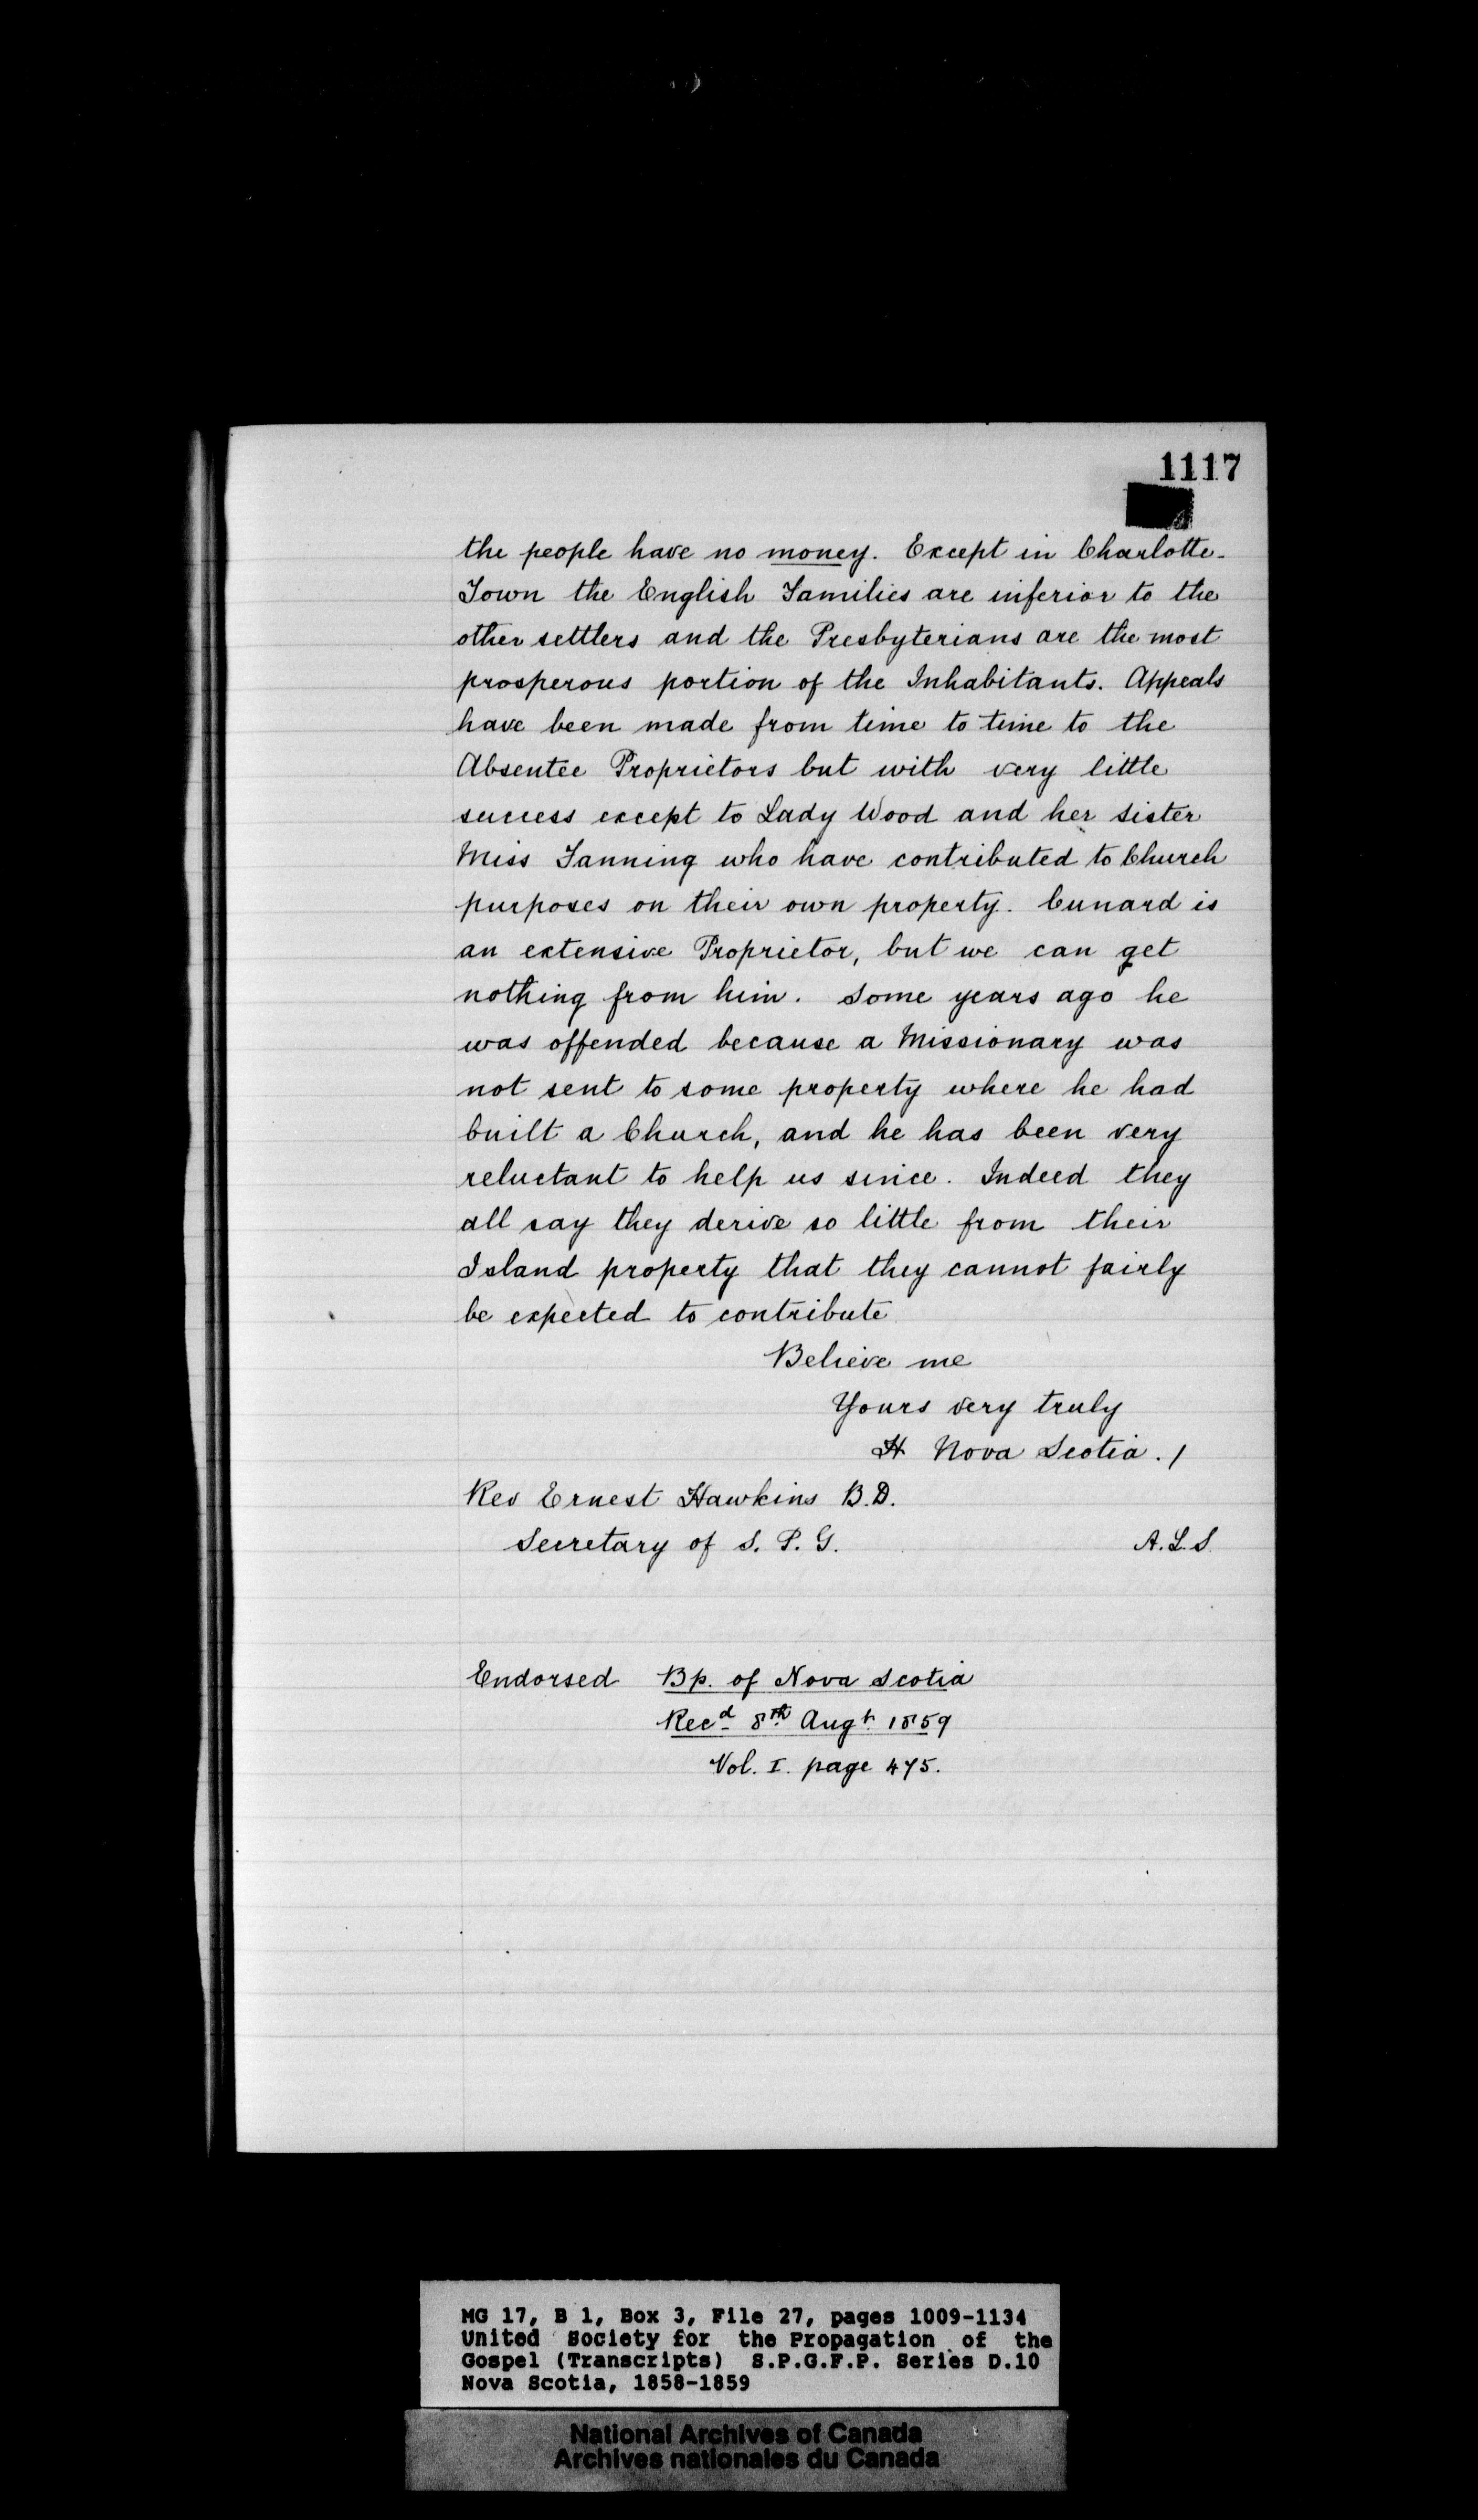 1117
the people have no money. Except in Charlotte-
Town the English Families are inferior to the
other settlers and the Presbyterians are the most
prosperous portion of the Inhabitants. Appeals
have been made from time to time to the
Absentee Proprietors but with very little
success except to Lady Wood and her sister
Miss Fanning who have contributed to Church
purposes on their own property. Cunard is
an extensive Proprietor, but we can get
nothing from him. Some years ago he
was offended because a Missionary was
not sent to some property where he had
built a Church, and he has been very
reluctant to help us since. Indeed they
all say they derive so little from their
Island property that they cannot fairly
be expected to contribute
Believe me
Yours very truly
H Nova Scotia. /
Rev Ernest Hawkins B.D.
Secretary of S. P. G.
A. L. S.
Endorsed Bp. of Nova Scotia
Recd 8th Augt. 1859
Vol. I. page 475.
MG 17, B 1, Box 3, File 27, pages 1009-1134
United Society for the Propagation of the
Gospel (Transcripts) S.P.G.F.P. Series D.10
Nova Scotia, 1858-1859
National Archives of Canada
Archives nationales du Canada